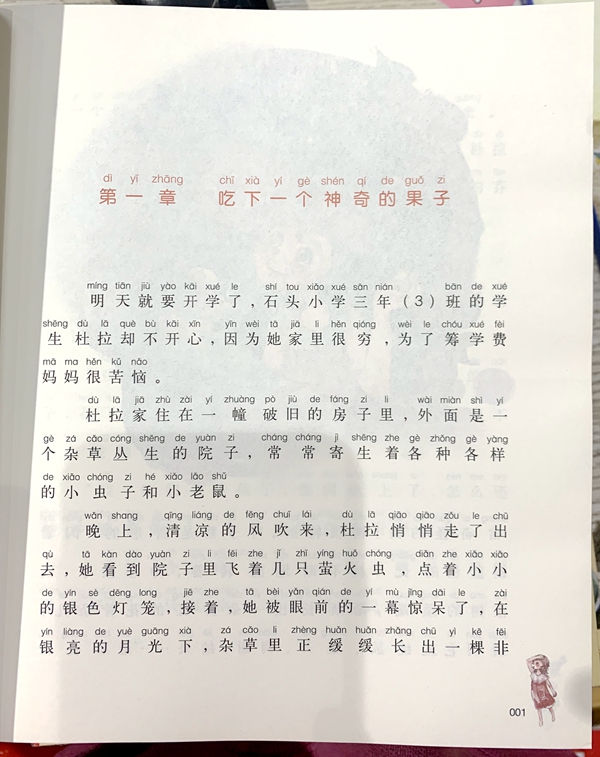 dì yī zhāng chī xià yí gè shén qí de guǒ zi
第一章 吃下一个神奇的果子
míng tiān jiù yào kāi xué le shí tou xiǎo xué sān nián bān de xué
明天就要开学了，石头小学三年（3）班的学
shēng dù lā què bù kāi xīn yīn wèi tā jiā li hěn qióng wèi le chóu xué fèi
生杜拉却不开心，因为她家里很穷，为了筹学费
mā ma hěn kǔ nǎo
妈妈很苦恼。
dù lā jiā zhù zài yí zhuàng pò jiù de fáng zi li wài miàn shì yí
杜拉家住在一幢破旧的房子里，外面是一
gè zá cǎo cóng shēng de yuàn zi cháng cháng jì shēng zhe gè zhǒng gè yàng
个杂草丛生的院子，常常寄生着各种各样
de xiǎo chóng zi hé xiǎo lǎo shǔ
的小虫子和小老鼠。
wǎn shang qīng liáng de fēng chuī lái dù lā qiāo qiāo zǒu le chū
晚上，清凉的风吹来，杜拉悄悄走了出
qù tā kàn dào yuàn zi li fēi zhe jǐ zhī yíng huǒ chóng diǎn zhe xiǎo xiǎo
去，她看到院子里飞着几只萤火虫，点着小小
de yín sè dēng long jiē zhe tā bèi yǎn qián de yí mù jīng dāi le zài
的银色灯笼，接着，她被眼前的一幕惊呆了，在
yín liàng de yuè guāng xià zá cǎo li zhèng huǎn huǎn zhǎng chū yì kē fēi
银亮的月光下，杂草里正缓缓长出一棵非
001